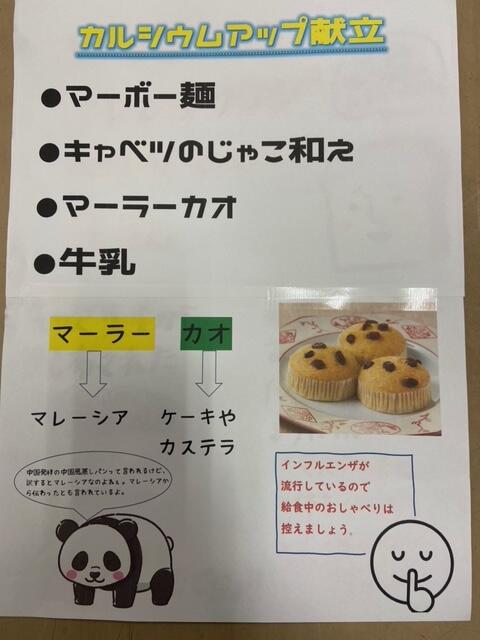 カルシウムアップ献立
●マーボー麺
●キャベツのじゃこ和え
●マーラーカオ
●牛乳
マーラー カオ
マレーシア ケーキや
カステラ
中国発祥の中国風蒸しパンって言われるけど、
訳するとマレーシアなのよねぇ。マレーシアか
ら伝わったとも言われているよ。
インフルエンザが
流行しているので
給食中のおしゃべりは
控えましょう。